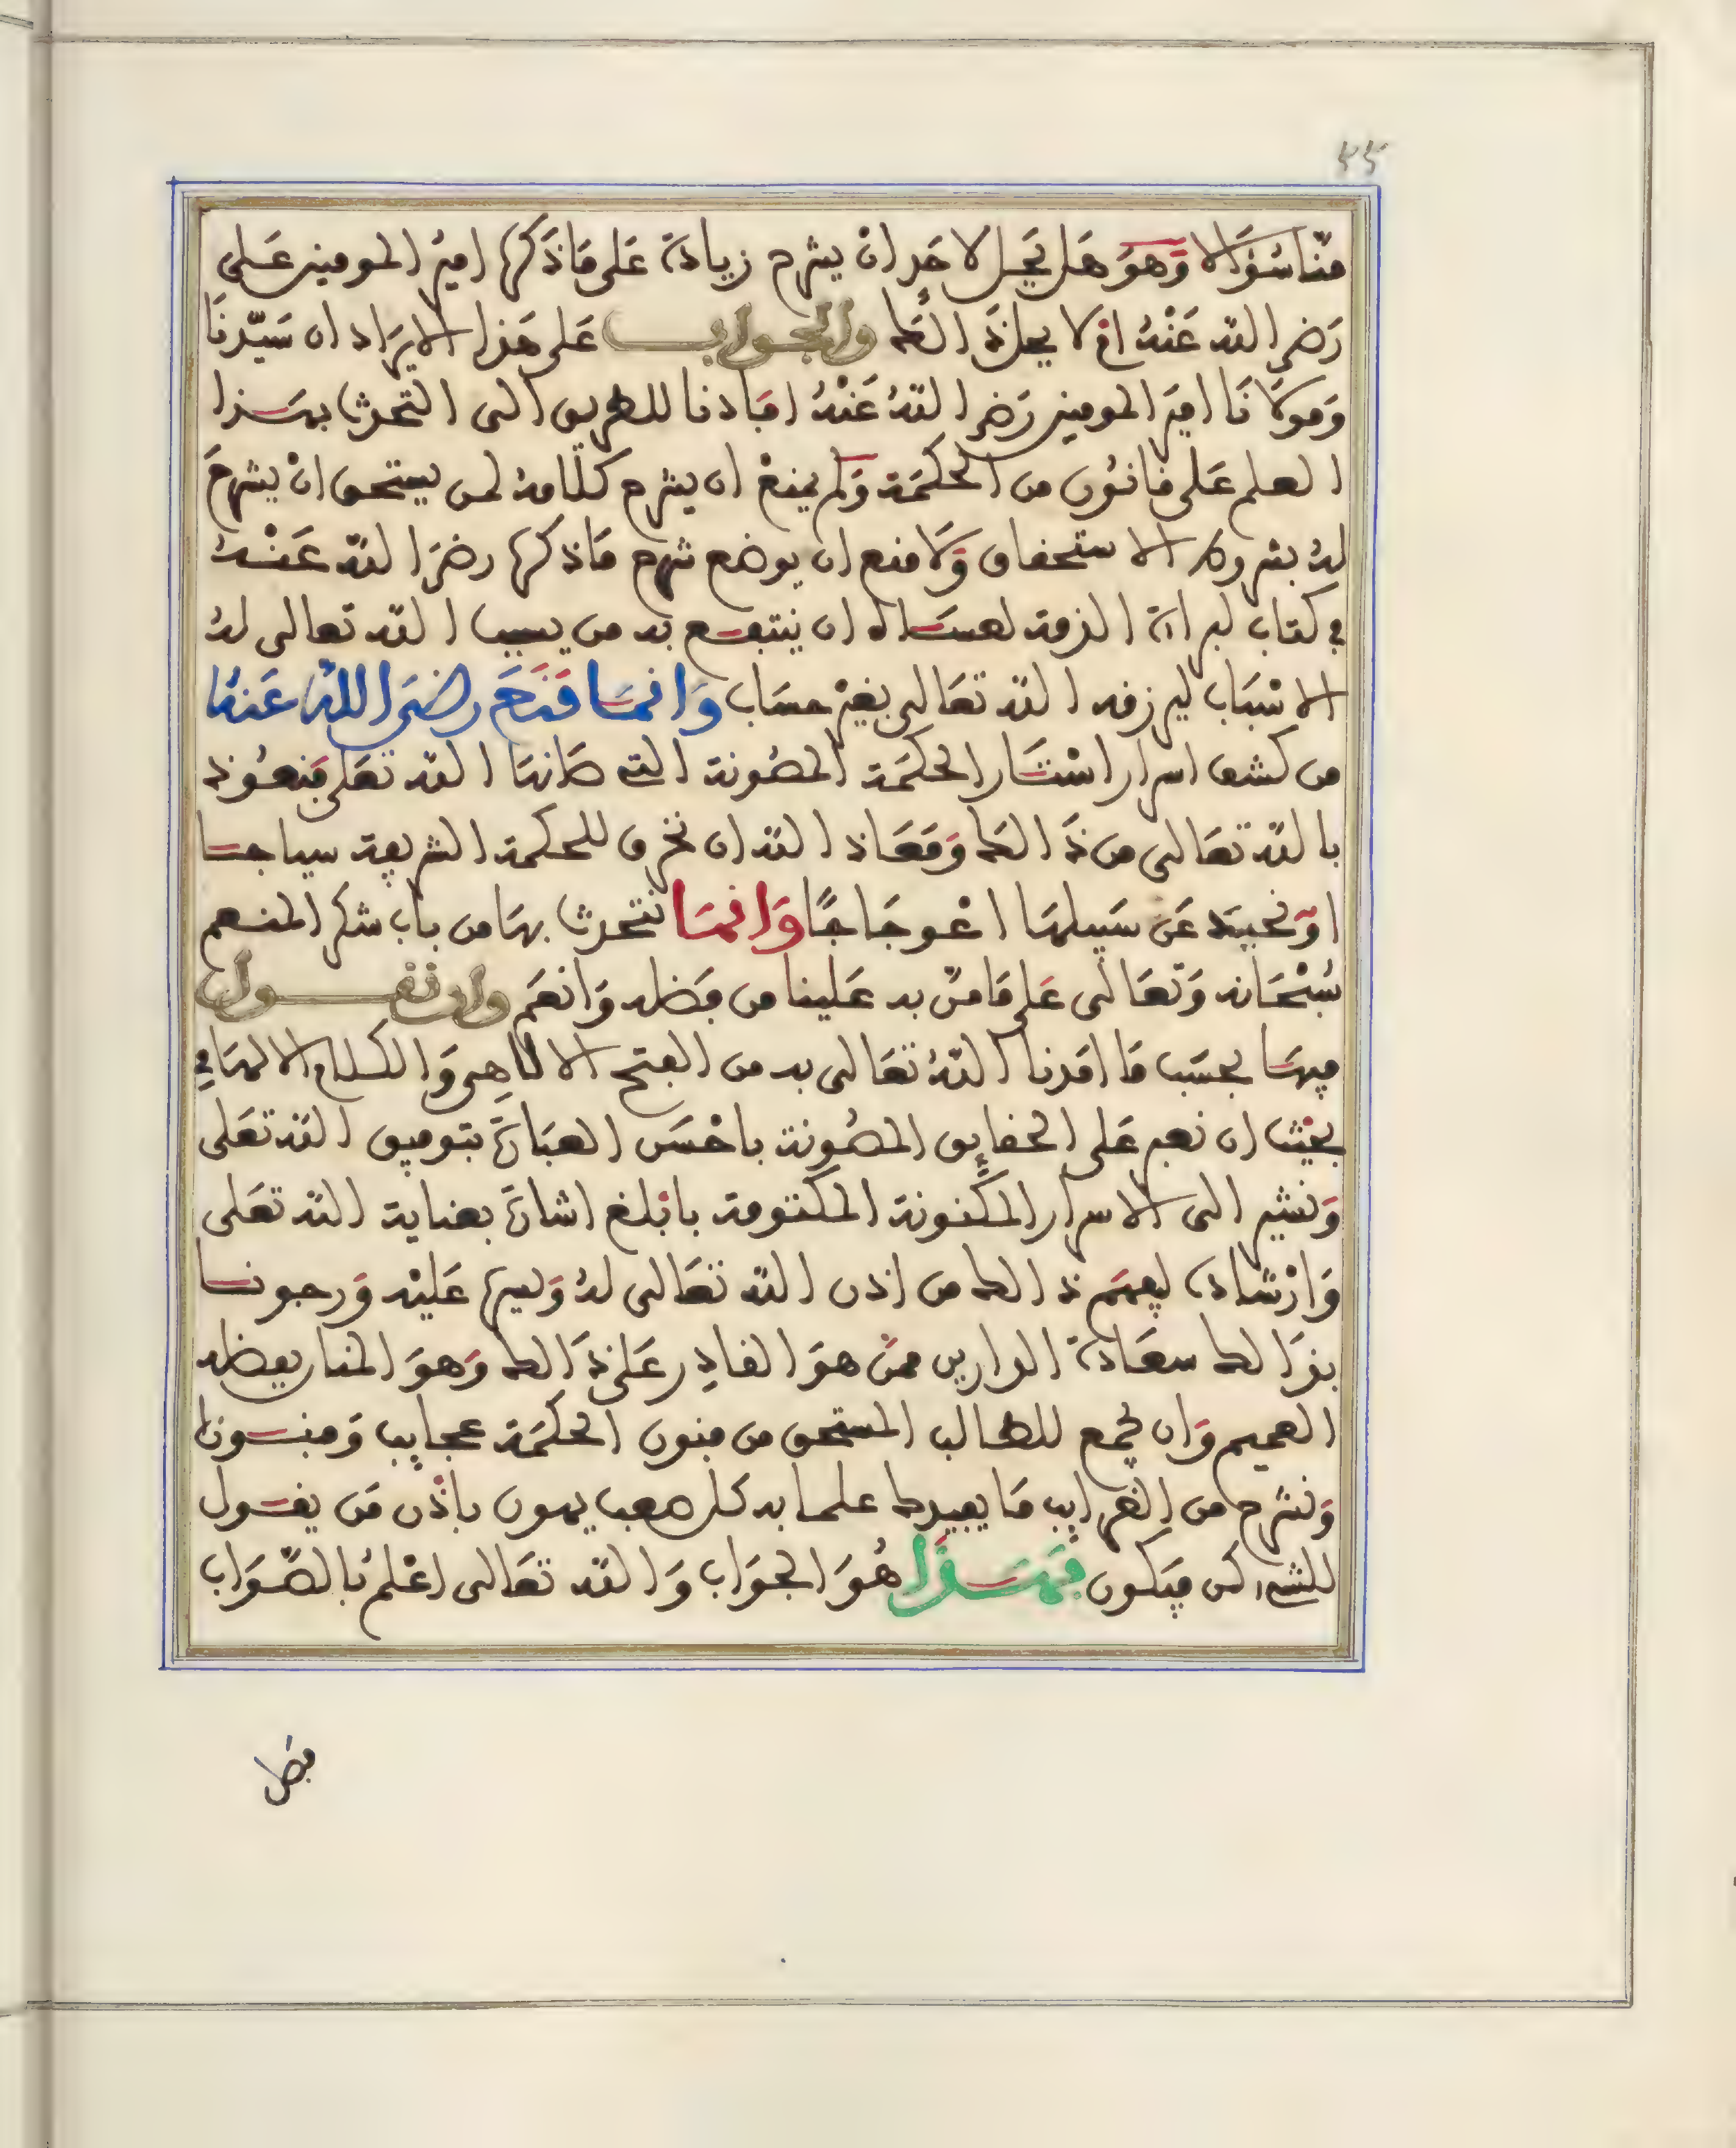 ٢٢
منا سُؤالا وَهوَ هل يحل لاحد ان يشرح زيادة على ما ذكره امير المومنين على
رَضي الله عَنْهُ ام لا يحل ذَالك والجواب على هذا الايراد ان سَيّدنَا
وَمولانَا امير المومنين رَضي اللهُ عَنْهُ افادنا للطريق الى التحدث بهذا
العلم على قانون من الحكمَة وَلم يمنعْ ان يشرح كلامهُ لمن يستحق انْ يشرحَ
لهُ بشروط الاستحقاق وَلا منع ان يوضع شرح ما ذكره رضيَ الله عَنْهُ
في كتاب لبراءة الذمة لعسَاه ان ينتفع به من يسبب الله تعالى لهُ
الاسْبَاب ليرزقه الله تعَالى بغير حسَاب وَانما منَعَ رضيَ اللهُ عَنهُ
من كشف اسرار استَار الحكمَة المصُونة التي صَانهَا الله تعَلى فنعُوذ
بالله تعَالى من ذَالك وَمعَاذ الله ان نخرق للحكمة الشريعة سياجا
اوْ نحيد عَن سَبيلها اعْوجَاجًا وَانما نتحدث بهَا من باب شكر المنعم
سُبْحَانه وَتعَالى عَلى مَا منّ به عَلينا من فضله وَانعَم وان نقول
فيهَا بحسَب مَا امَدنا اللهُ تعَالى به من الفتح الالاهِي وَالكلام الالهَامي
بحيْث ان نعبر عَلى الحقايق المصُونة باحْسَن العبَارة بتوفيق الله تعَلى
وَنشير الى الاسرار المكنونة المكتومة بابْلغ اشارة بعناية الله تعَلى
وَارْشاده ليفهَم ذالك من اذن الله تعَالى لهُ وَليسر عَليْه وَرجونا
بذَالك سعَادة الدارين ممنْ هوَ القادِر عَلى ذَالك وَهوَ المنان بفضله
العميم وَان نجمع للطالب المستحق من فنون الحكمَة عجايب وَفنونا
وَنشرح من الغرايب مَا يفيدك علما به كل صعب يهون باذْن مَن يقول
للشيء كن فيكون فهَذَا هُوَ الجوَاب وَالله تعَالى اعْلمُ بالصَّوَاب
فصل